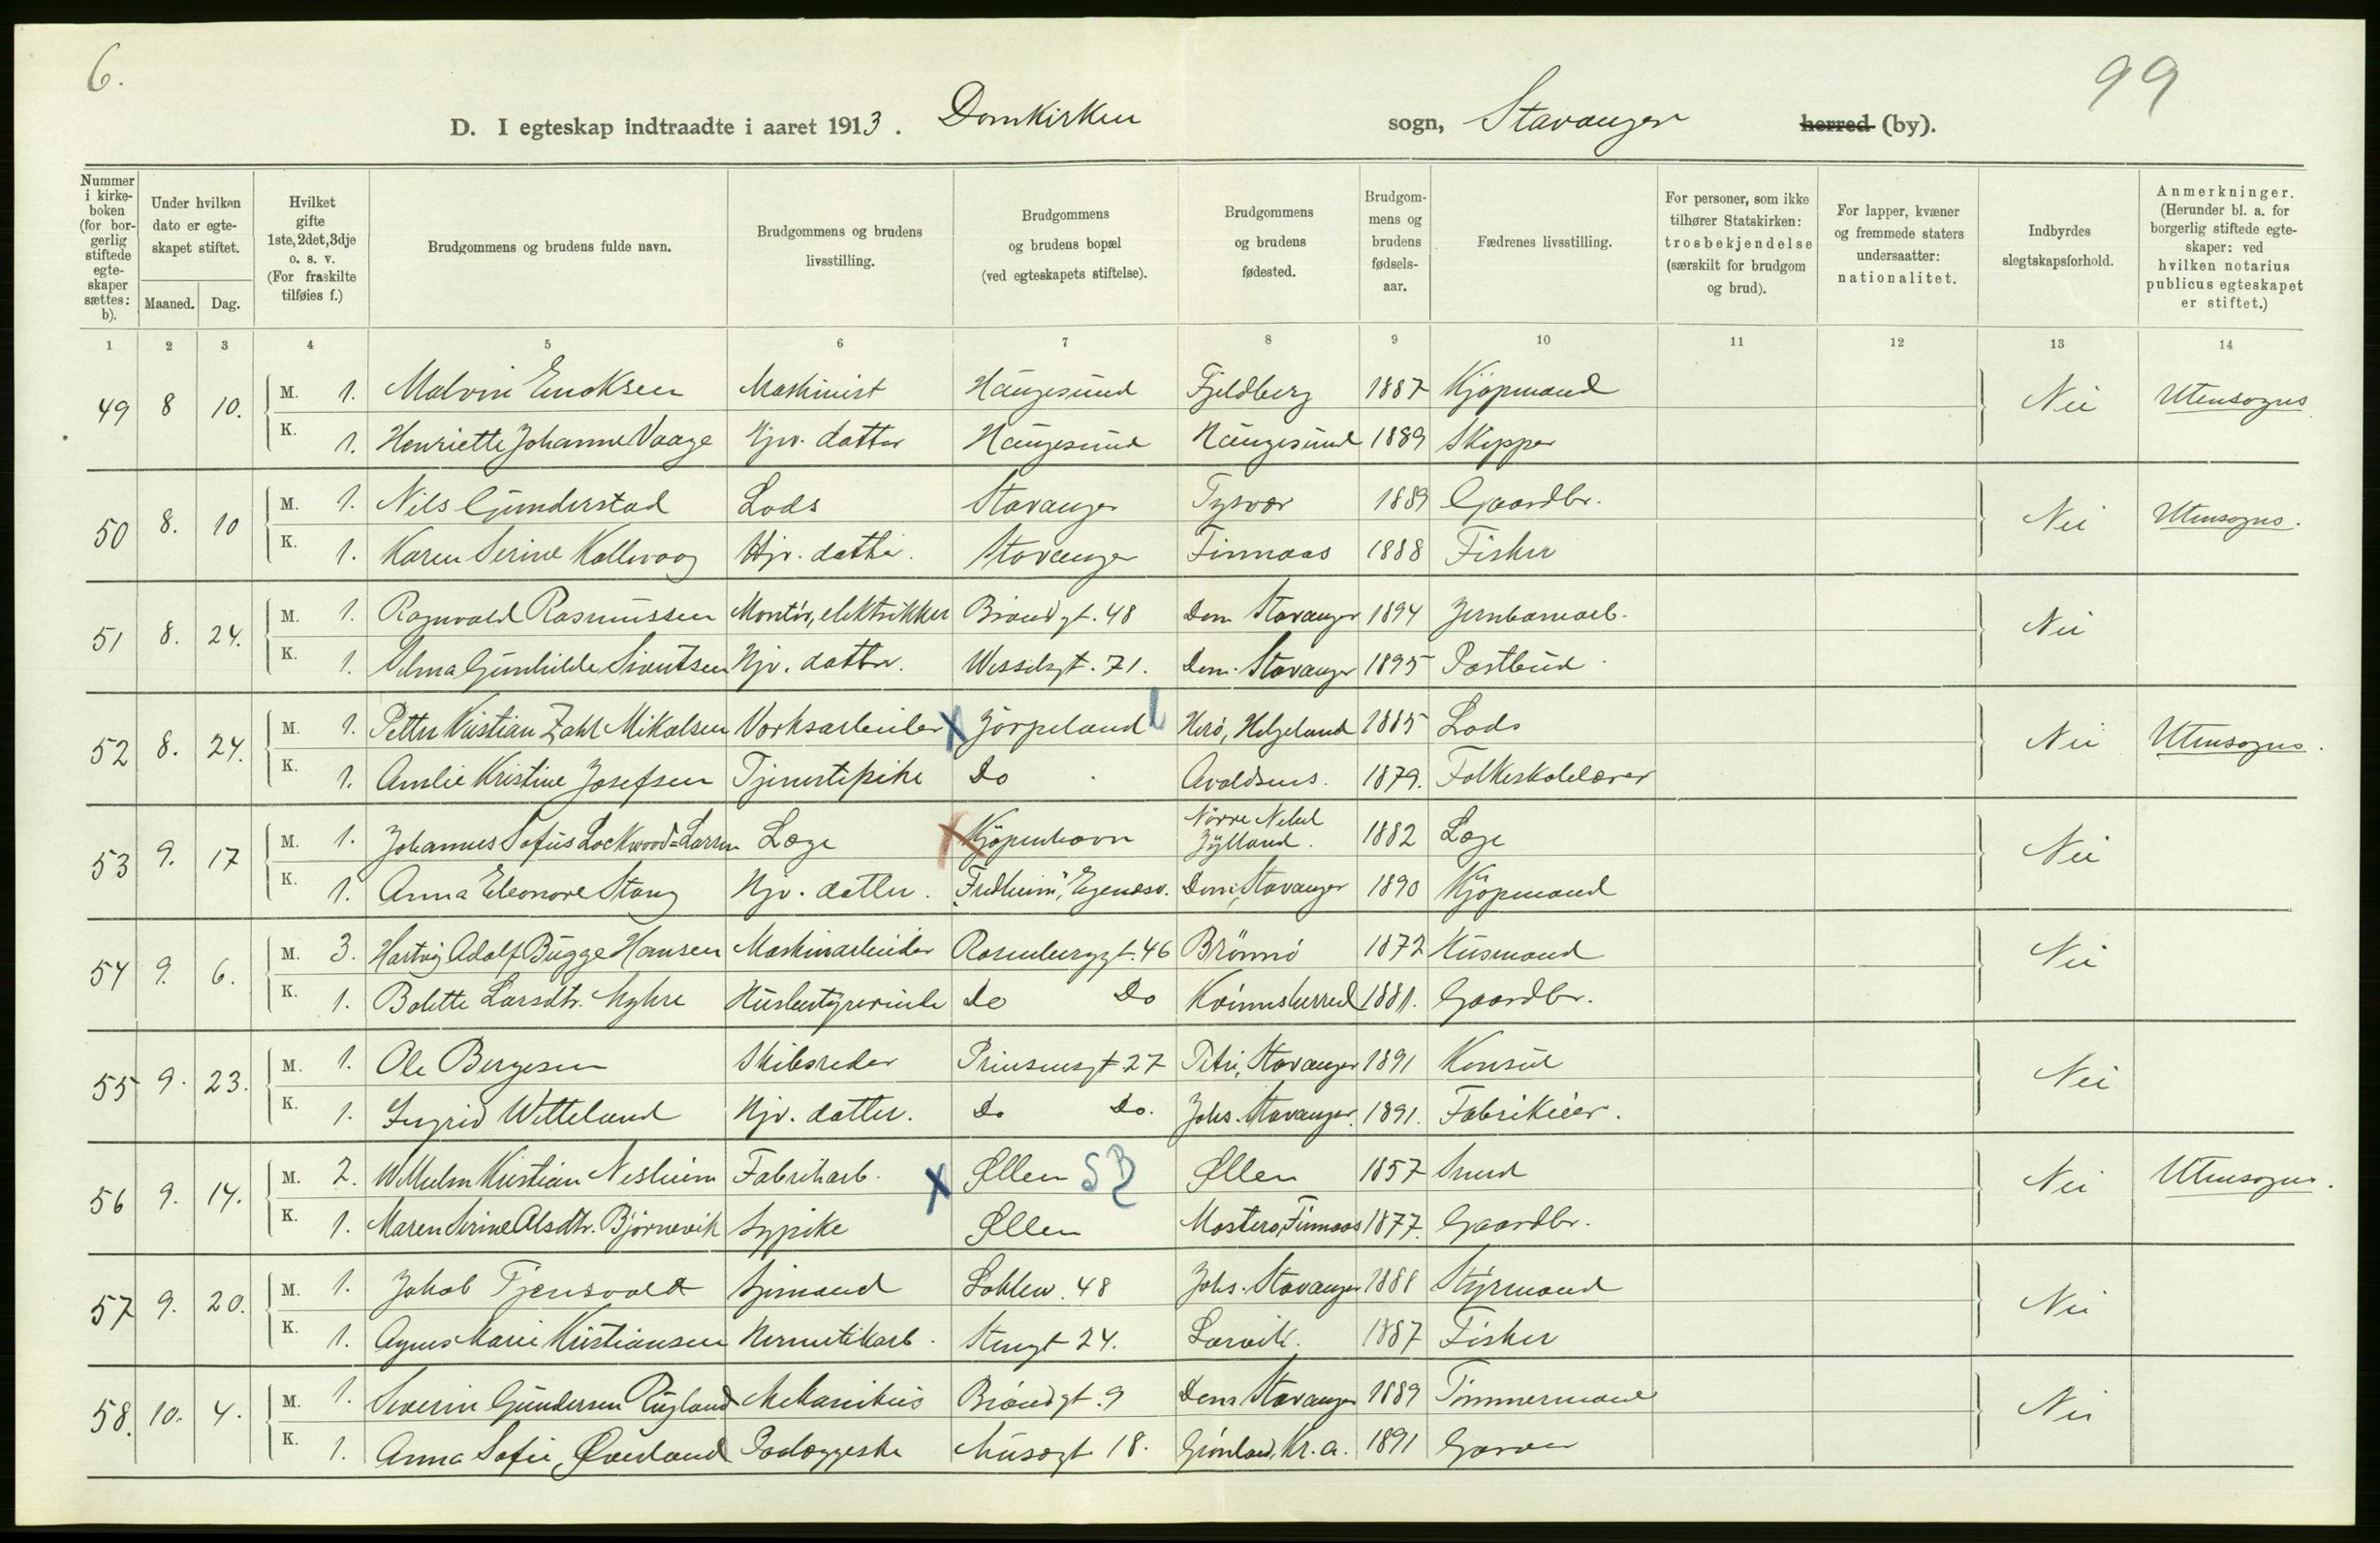 6.
99
D. I egteskap indtraadte i aaret 1913. Domkirken sogn, Stavanger herred (by).
Nummer i kirkeboken (for borgerlig stiftede egteskaper sættes: b).
Under hvilken dato er egteskapet stiftet.
Maaned. Dag.
Hvilket gifte 1ste, 2det, 3dje o. s. v. (For fraskilte tilføies f.)
Brudgommens og brudens fulde navn.
Brudgommens og brudens livsstilling.
Brudgommens og brudens bopæl (ved egteskapets stiftelse).
Brudgommens og brudens fødested.
Brudgommens og brudens fødselsaar.
Fædrenes livsstilling.
For personer, som ikke tilhører Statskirken: trosbekjendelse (særskilt for brudgom og brud).
For lapper, kvæner og fremmede staters undersaatter: nationalitet.
Indbyrdes slegtskapsforhold.
Anmerkninger. (Herunder bl. a. for borgerlig stiftede egteskaper: ved hvilken notarius publicus egteskapet er stiftet.)
1 2 3 4 5 6 7 8 9 10 11 12 13 14
49 8 10. M. 1. Malvin Enoksen Maskinist Haugesund Fjeldberg 1887 Kjøpmand Nei Utensogns
K. 1. Henriette Johanne Vaage Hjv. datter Haugesund Haugesund 1889 Skipper
50 8. 10 M. 1. Nils Gunderstad Lods Stavanger Tysvær 1889 Gaardbr. Nei Utensogns.
K. 1. Karen Serine Kallevaag Hjv. datter. Stavanger Finnaas 1888 Fisker
51 8. 24. M. 1. Ragnvald Rasmussen Montör, elektrikker Brandgt. 48 Dom Stavanger 1894 Jernbanearb. Nei
K. 1. Selma Gunhilde Sivertsen Hjv. datter. Wesselsgt. 71. Dom. Stavanger 1895 Postbud
52 8. 24. M. 1. Petter Kristian Zahl Mikalsen Verksarbeider X Jörpeland Herö, Helgeland 1885 Lods Nei Utensogns.
K. 1. Amlie Kristine Josefsen Tjenestepike Do Avaldsnes. 1879. Folkeskolelærer
53 9. 17 M. 1. Johannes Sofus Lockwood=Larsen Læge X Kjöpenhavn Nörre Nebel Jylland. 1882 Læge Nei
K. 1. Anna Eleonore Stang Hjv. datter. "Fredheim", Egenesv. Dom, Stavanger 1890 Kjöpmand
54 9. 6. M. 3. Hartvig Adolf Bugge Hansen Maskinarbeider Rosenberggt. 46 Brönnö 1872 Husmand Nei
K. 1. Bolette Larsdtr. Myhre Husbestyrerinde Do Do Kvinnsherred 1881. Gaardbr.
55 9. 23. M. 1. Ole Bergesen Skibsreder Prinsensgt 27 Petri, Stavanger 1891 Konsul Nei
K. 1. Ingrid Watteland Hjv. datter. Do Do. Johs. Stavanger. 1891. Fabrikeier.
56 9. 14. M. 2. Wilhelm Kristian Nesheim Fabrikarb. X Ølen Ølen 1857 Smed Nei Utensogns.
K. 1. Maren Serine Olsdtr. Björnevik Sypike Ølen Mosterö, Finnaas 1877. Gaardbr.
57 9. 20. M. 1. Jakob Tjensvold Sjömand Løkkev. 48 Johs. Stavanger 1888 Styrmand Nei
K. 1. Agnes Marie Kristiansen Hermetikarb. Stengt 24. Larvik. 1887 Fisker
58. 10. 4. M. 1. Severin Gundersen Rugland Mekanikus Brandgt. 9 Dom Stavanger 1889 Tömmermand Nei
K. 1. Anna Sofie Øverland Paalæggerske Musegt 18. Grönland, Kr.a. 1891 Garver